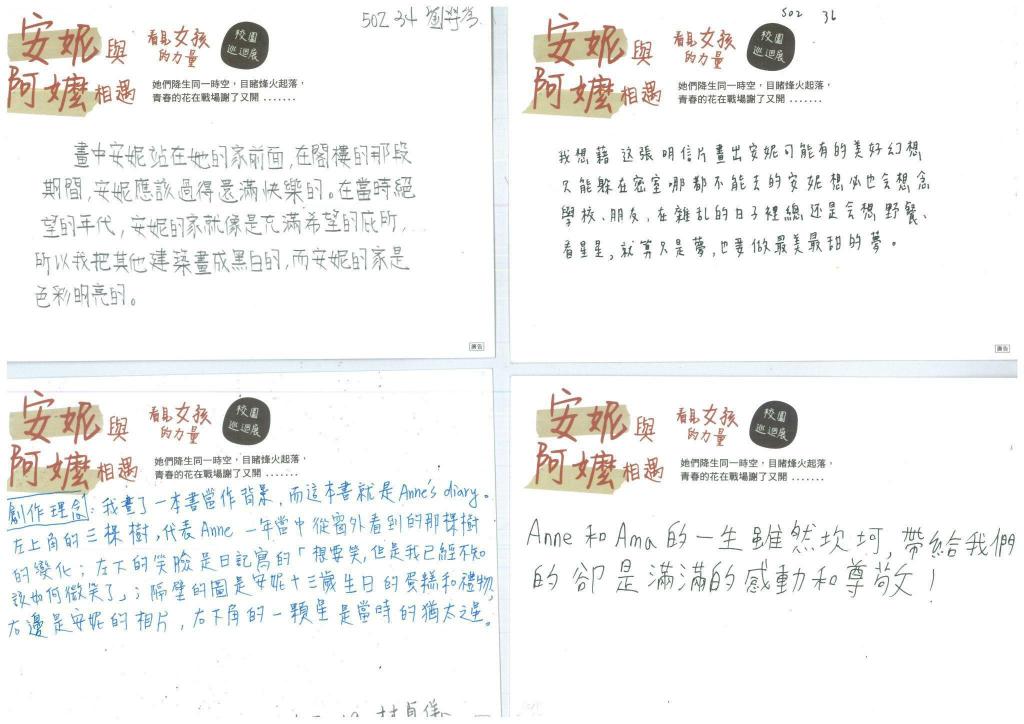 502 34
安妮與
阿嬤相遇
看見女孩
的力量
校園
巡迴展
她們降生同一時空,目睹烽火起落,
青春的花在戰場謝了又開 .......
畫中安妮站在她的家前面,在閣樓的那段
期間,安妮應該過得還滿快樂的。在當時絕
望的年代,安妮的家就像是充滿希望的庇所,...
所以我把其他建築畫成黑白的,而安妮的家是
色彩明亮的。
廣告
502 36
安妮與
阿嬤相遇
看見女孩
的力量
校園
巡迴展
她們降生同一時空,目睹烽火起落,
青春的花在戰場謝了又開 .......
我想藉這張明信片畫出安妮可能有的美好幻想,
只能躲在密室哪都不能去的安妮想必也会想念
學校、朋友,在雜乱的日子裡總還是会想野餐、
看星星,就算只是夢,也要做最美最甜的夢。
廣告
安妮與
阿嬤相遇
看見女孩
的力量
校園
巡迴展
她們降生同一時空,目睹烽火起落,
青春的花在戰場謝了又開 .......
創作理念:我畫了一本書當作背景,而這本書就是Anne's diary。
左上角的三棵樹,代表Anne 一年當中從窗外看到的那棵樹
的變化;左下的笑臉是日記寫的「想要笑,但是我已經不知
該如何微笑了」;隔壁的圖是安妮十三歲生日的蛋糕和禮物,
右邊是安妮的相片,右下角的一顆星是當時的猶太之星。
安妮與
阿嬤相遇
看見女孩
的力量
校園
巡迴展
她們降生同一時空,目睹烽火起落,
青春的花在戰場謝了又開 .......
Anne和Ama的一生雖然坎坷,帶給我們
的卻是滿滿的感動和尊敬!